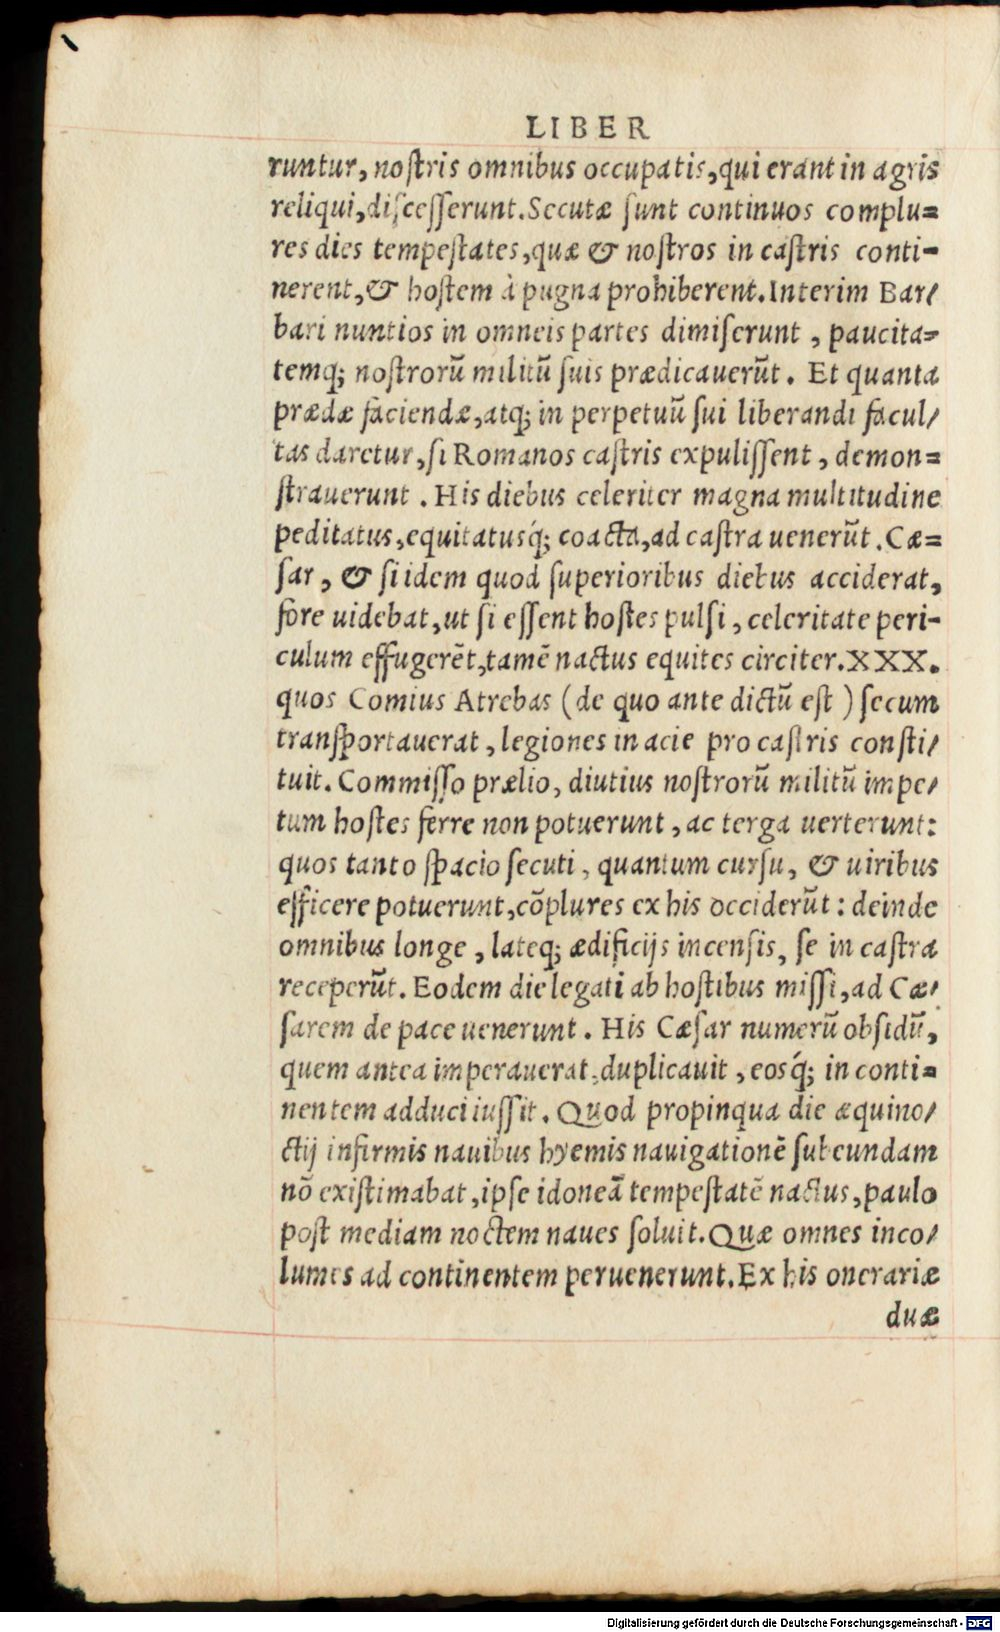 LIBER
runtur, noſtris omnibus occupatis, qui erant in agris
reliqui, diſceſſerunt. Secutæ ſunt continuos complu=
res dies tempeſtates, quæ & noſtros in caſtris conti-
nerent, & hoſtem à pugna prohiberent. Interim Bar/
bari nuntios in omneis partes dimiſerunt, paucita=
temq; noſtrorū militū ſuis prædicauerūt. Et quanta
prædæ faciendæ, atq; in perpetuū ſui liberandi facul/
tas daretur, ſi Romanos caſtris expuliſſent, demon=
ſtrauerunt. His diebus celeriter magna multitudine
peditatus, equitatusq́; coacta, ad caſtra uenerūt. Cæ=
ſar, & ſi idem quod ſuperioribus diebus acciderat,
fore uidebat, ut ſi eſſent hoſtes pulſi, celeritate peri-
culum effugerēt, tamē nactus equites circiter. XXX.
quos Comius Atrebas (de quo ante dictū eſt) ſecum
tranſportauerat, legiones in acie pro caſtris conſti/
tuit. Commiſſo prælio, diutius noſtrorū militū impe/
tum hoſtes ferre non potuerunt, ac terga uerterunt:
quos tanto ſpacio ſecuti, quantum curſu, & uiribus
efficere potuerunt, cōplures ex his occiderūt: deinde
omnibus longe, lateq; ædificijs incenſis, ſe in caſtra
receperūt. Eodem die legati ab hoſtibus miſſi, ad Cæ/
ſarem de pace uenerunt. His Cæſar numerū obſidū,
quem antea imperauerat, duplicauit, eosq́; in conti=
nentem adduci iuſſit. Quod propinqua die æquino/
ctij infirmis nauibus hyemis nauigationē ſubeundam
nō exiſtimabat, ipſe idoneā tempeſtatē nactus, paulo
poſt mediam noctem naues ſoluit. Quæ omnes inco/
lumes ad continentem peruenerunt. Ex his onerariæ
duæ
Digitalisierung gefördert durch die Deutsche Forschungsgemeinschaft - DFG